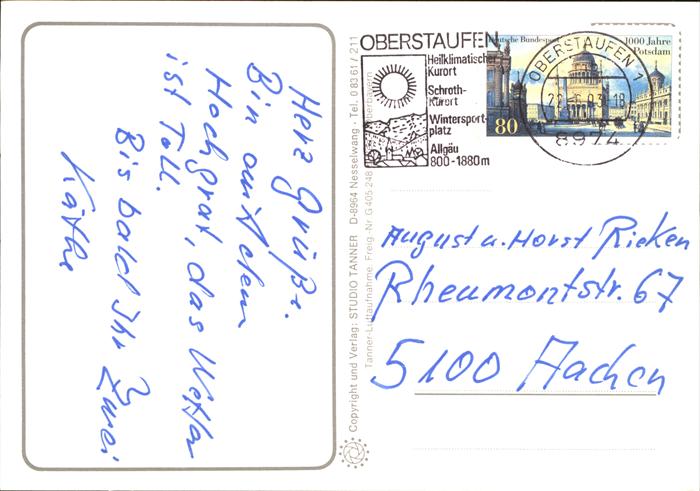 Herz Grüße.
Bin auf dem
Hochgrat, das Wetter
ist Toll.
Bis bald Ihr Zwei
Käthe
Copyright und Verlag: STUDIO TANNER D-8964 Nesselwang · Tel. 0 83 61 / 211
Tanner-Luftaufnahme. Freig.-Nr. G 405 248 Oberbayern
OBERSTAUFEN
Heilklimatischer
Kurort
Schroth-
Kurort
Wintersport-
platz
Allgäu
800-1880m
Deutsche Bundespost
1000 Jahre
Potsdam
80
OBERSTAUFEN 1
8974
August u. Horst Ricken
Rheumontstr. 67
5100 Aachen